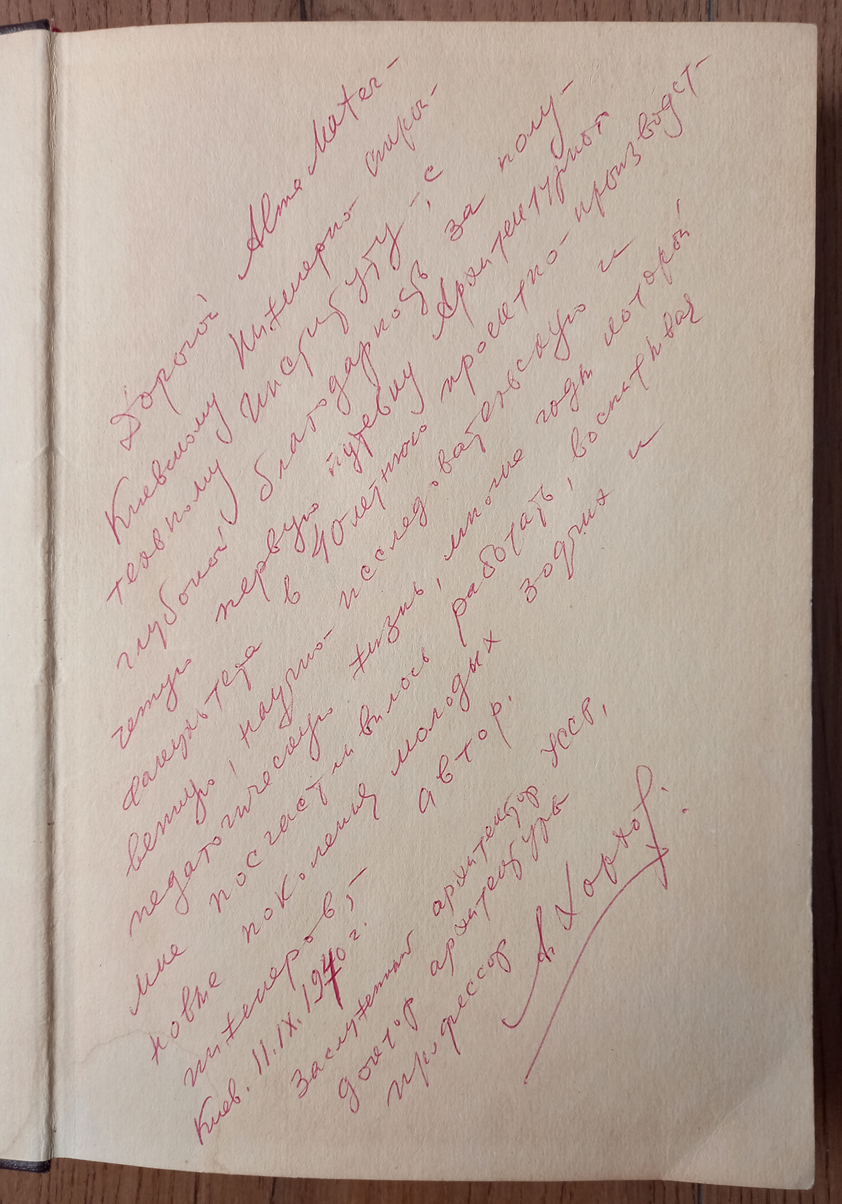 Дорогой Alma Mater -
Киевскому Инженерно строи-
тельному Институту -, с
глубокой благодарность за полу-
ченую первую путевку Архитектурного
факультета в 40летнюю проектно-производст-
венную, научно-исследовательскую и
педагогическую жизнь, многие годы которой
мне посчастливилось работать, воспитывая
новые поколения молодых зодчих и
инженеров, - автор.
Киев. 11.IX.1970 г.
Заслуженный архитектор УССР,
доктор архитектуры
профессор А. Хорхот.